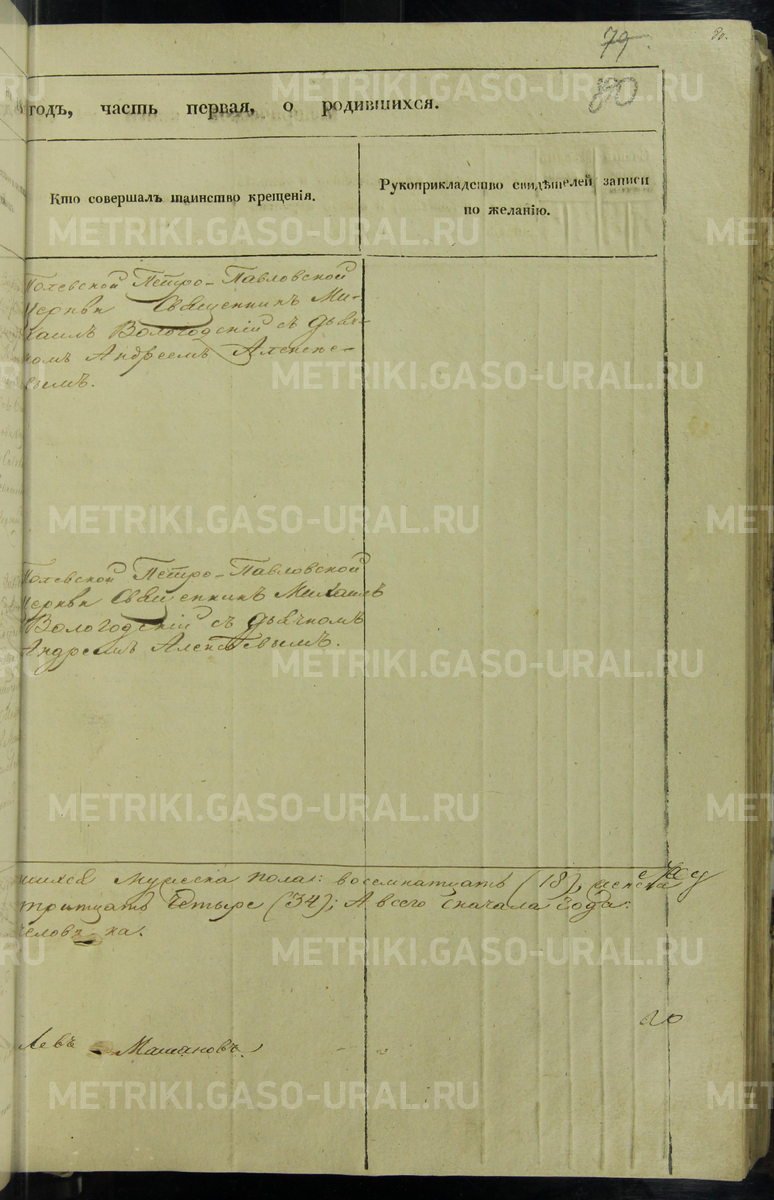 79.
80.
80
годъ, часть первая, о родившихся.
Кто совершалъ таинство крещенія.
Рукоприкладство свидѣтелей записи
по желанію.
Полевской Петро-Павловской
Церкви Священникъ Ми-
хаилъ Вологодскій съ дьяч-
комъ Андреемъ Алексѣе-
вымъ.
Полевской Петро-Павловской
Церкви Священникъ Михаилъ
Вологодскій съ дьячкомъ
Андреемъ Алексѣевымъ.
шихся мужеска пола: восемнатцать (18), женска
тритцать четыре (34); А всего сначала года:
человѣка.
Левъ
METRIKI.GASO-URAL.RU